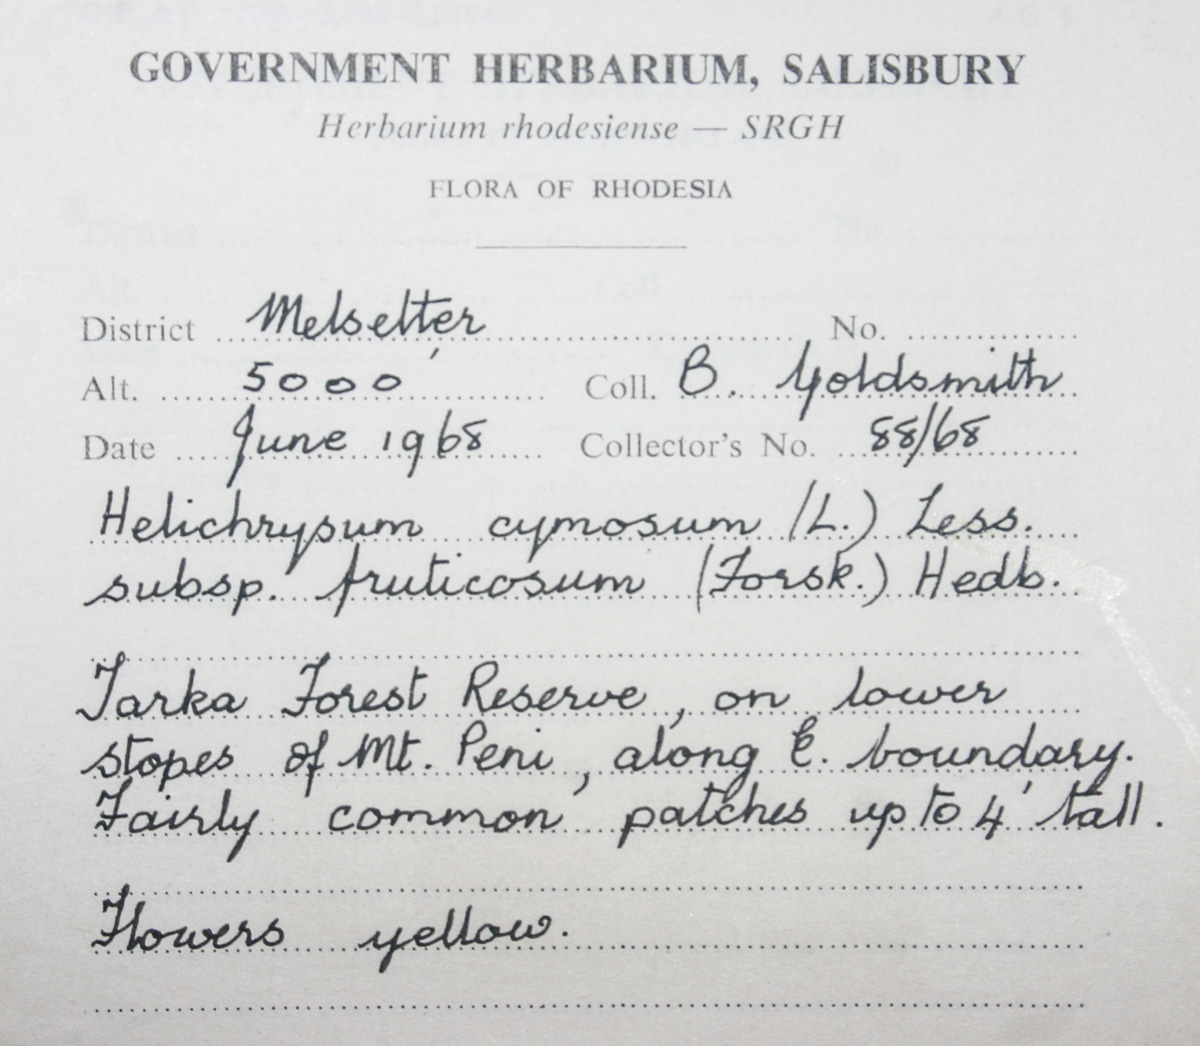 GOVERNMENT HERBARIUM, SALISBURY
Herbarium rhodesiense — SRGH
FLORA OF RHODESIA
District Melsetter No.
Alt. 5000' Coll. B. Goldsmith
Date June 1968 Collector's No. 88/68
Helichrysum cymosum (L.) Less.
subsp. fruticosum (Forsk.) Hedb.
Tarka Forest Reserve, on lower
slopes of Mt. Peni, along E. boundary.
Fairly common patches up to 4' tall.
Flowers yellow.